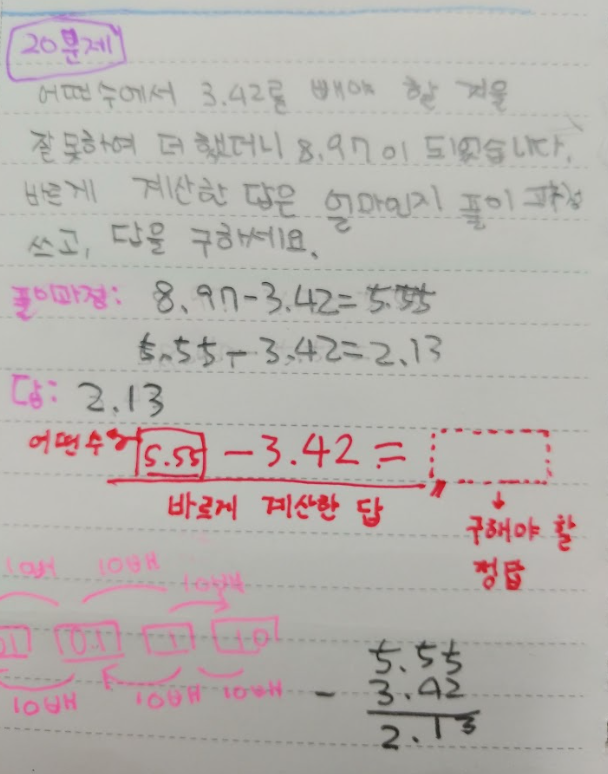 20문제
어떤수에서 3.42를 빼야 할 것을
잘못하여 더했더니 8.97이 되었습니다.
바르게 계산한 답은 얼마인지 풀이 과정
쓰고, 답을 구하세요.
풀이과정: 8.97-3.42=5.55
5.55-3.42=2.13
답: 2.13
어떤수 5.55 - 3.42 =
바르게 계산한 답
구해야 할
정답
10배 10배 10배
0.1 1 10
10배 10배 10배
5.55
- 3.42
2.13